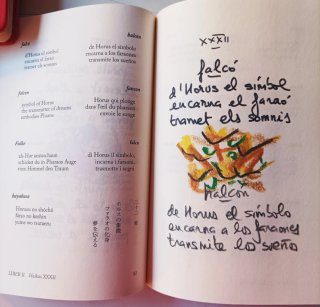 falcó
d'Horus el símbol
encarna el faraó
tramet els somnis
halcón
de Horus el símbolo
encarna a los faraones
transmite los sueños
falcon
symbol of Horus
the transmitter of dreams
embodies Pharao
faucon
Horus que plonge
dans l'œil du pharaon
envoie le songe
Falke
als Hor semechaut
schickst du in Pharaos Auge
vom Himmel den Traum
falcó
di Horus il símbolo,
incarna i faraoni,
trasmette i sogni
hayabusa
Horusu no shōchō
farao no keshin
yume wo tsutaeru
三十二 隼
ホルスの象徴
ファラオの化身
夢を伝える
LIBER II Haikus XXXII
XXXII
falcó
d'Horus el símbol
encarna el faraó
tramet els somnis
halcón
de Horus el símbolo
encarna a los faraones
transmite los sueños